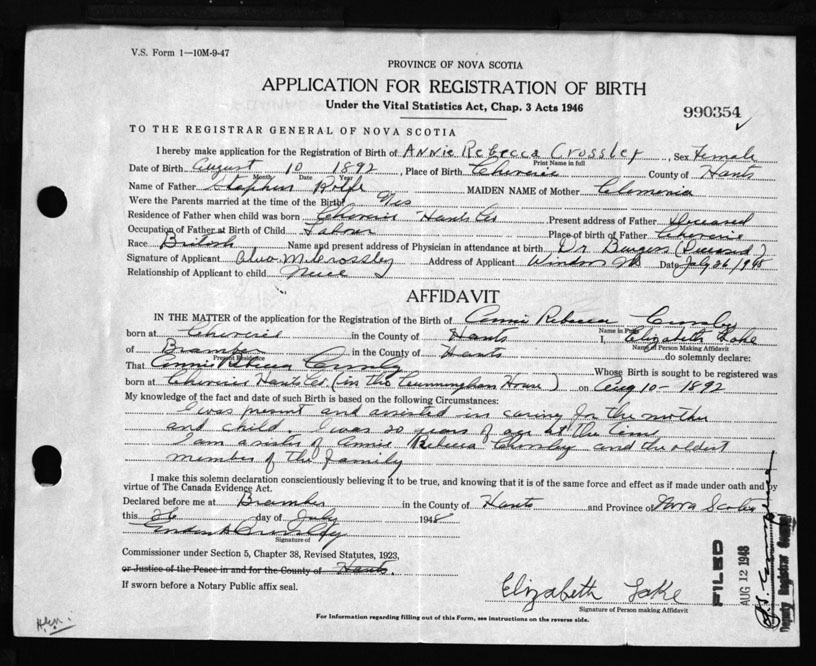 V.S. Form 1—10M-9-47
PROVINCE OF NOVA SCOTIA
APPLICATION FOR REGISTRATION OF BIRTH
Under the Vital Statistics Act, Chap. 3 Acts 1946
990354
TO THE REGISTRAR GENERAL OF NOVA SCOTIA
I hereby make application for the Registration of Birth of Annie Rebecca Crossley, Sex Female
Print Name in full
Date of Birth August 10 1892, Place of Birth Cheverie County of Hants
Month Date Year
Name of Father Stephen Rolfe MAIDEN NAME of Mother
Were the Parents married at the time of the Birth? Yes
Residence of Father when child was born Cheverie Hants Co Present address of Father Deceased
Occupation of Father at Birth of Child Labour Place of birth of Father Cheverie
Race British Name and present address of Physician in attendance at birth Dr Burgess (Deceased)
Signature of Applicant M. Crossley Address of Applicant Windsor NS Date July 26/1948
Relationship of Applicant to child Niece
AFFIDAVIT
IN THE MATTER of the application for the Registration of the Birth of Annie Rebecca Crossley
Name in Full
born at Cheverie in the County of Hants I, Elizabeth Lake
Name of Person Making Affidavit
of Bramber in the County of Hants do solemnly declare:
Present Residence
That Annie Rebecca Crossley Whose Birth is sought to be registered was
born at Cheverie Hants Co. (in the Cunningham House) on Aug 10 - 1892
My knowledge of the fact and date of such Birth is based on the following Circumstances:
I was present and assisted in caring for the mother
and child. I was 20 years of age at the time
I am a sister of Annie Rebecca Crossley and the oldest
member of the family
I make this solemn declaration conscientiously believing it to be true, and knowing that it is of the same force and effect as if made under oath and by
virtue of The Canada Evidence Act.
Declared before me at Bramber in the County of Hants and Province of Nova Scotia
this 26 day of July 1948
Signature of
Commissioner under Section 5, Chapter 38, Revised Statutes, 1923,
or Justice of the Peace in and for the County of Hants.
If sworn before a Notary Public affix seal.
Elizabeth Lake
Signature of Person making Affidavit
For Information regarding filling out of this Form, see instructions on the reverse side.
FILED
AUG 12 1948
Deputy Registrar General